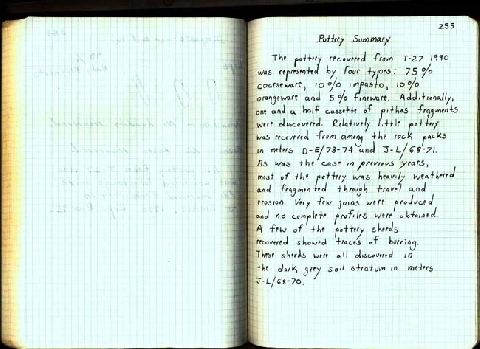 233
Pottery Summary
The pottery recovered from T-27 1990
was represented by four types: 75%
coarseware, 10% impasto, 10%
orangeware and 5% fineware. Additionally,
one and a half cassette of pithos fragments
were discovered. Relatively little pottery
was recovered from among the rock packs
in meters D-E/73-74 and J-L/68-71.
As was the case in previous years,
most of the pottery was heavily weathered
and fragmented through travel and
erosion. Very few joins were produced
and no complete profiles were obtained.
A few of the pottery sherds
recovered showed traces of burning.
These sherds were all discovered in
the dark grey soil stratum in meters
J-L/68-70.